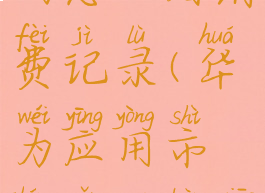 fèi jì lù huá
费记录(华
wéi yīng yòng shì
为应用市